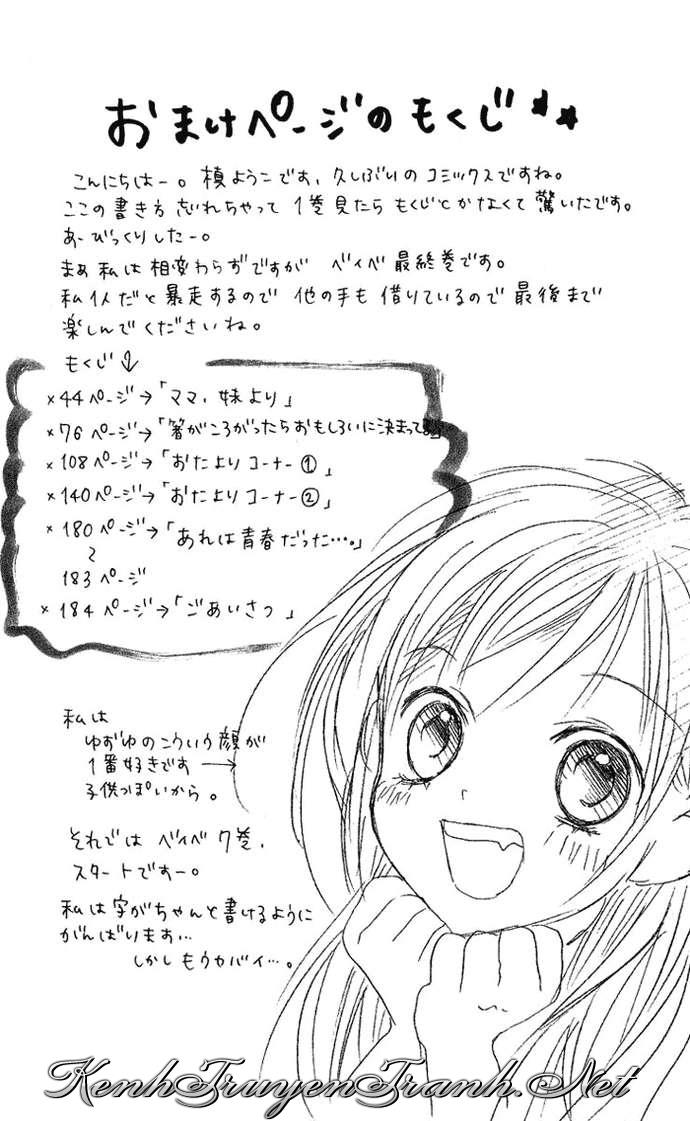 おまけページのもくじ**
こんにちはー。槙ようこです、久しぶりのコミックスですね。
ここの書き方忘れちゃって1巻見たらもくじとかなくて驚いたです。
あーびっくりしたー。
まぁ私は相変わらずですが ベイベ最終巻です。
私1人だと暴走するので 他の手も借りているので最後まで
楽しんでくださいね。
もくじ↓
×44ページ→「ママ、妹より」
×76ページ→「箸がころがったらおもしろいに決まって」
×108ページ→「おたよりコーナー①」
×140ページ→「おたよりコーナー②」
×180ページ→「あれは青春だった…。」
〜
183ページ
×184ページ→「ごあいさつ」
私は
ゆずゆのこういう顔が
1番好きです→
子供っぽいから。
それでは ベイベ7巻、
スタートですー。
私は字がちゃんと書けるように
がんばります…
しかしもうヤバイ…。
KenhTruyenTranh.Net